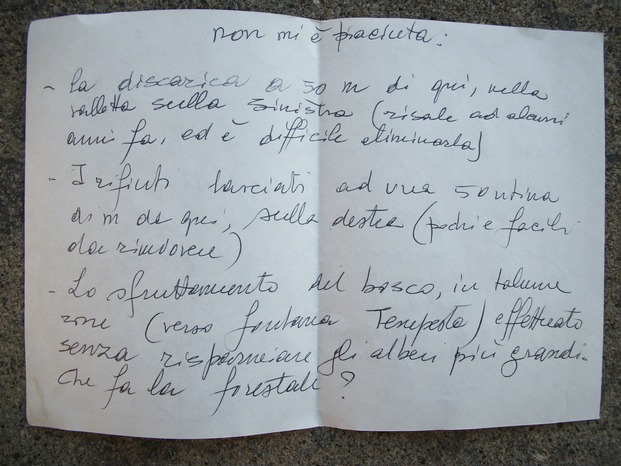 non mi è piaciuta:
- La discarica a 50 m di qui, nella
valletta sulla sinistra (risale ad alcuni
anni fa, ed è difficile eliminarla)
- I rifiuti lasciati ad una 50ntina
di m da qui, sulla destra (pochi e facili
da rimuovere)
- Lo sfruttamento del bosco, in talune
zone (verso fontana Tempesta) effettuato
senza risparmiare gli alberi più grandi.
Che fa la forestale?